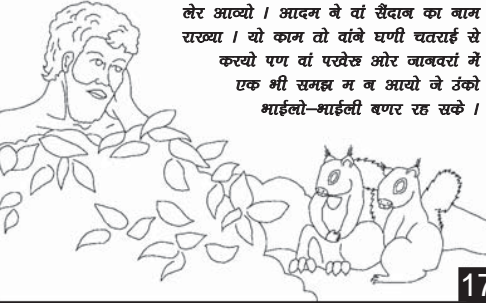 लेर आव्यो । आदम ने वां सैंदाब का नाम
राख्या । यो काम तो वांने घणी चतराई से
करयो पण वां पखेरू ओर जानवरां में
एक भी समझ म न आयो जे उंको
भाईलो–भाईली बणर रह सके ।
17